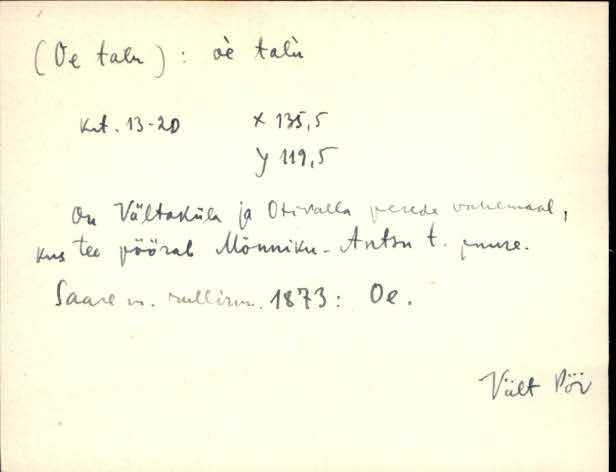 (Oe talu) : òè talù
krt. 13-20 x 135,5
y 119,5
On Vältaküla ja Otivalla perede vahemaal,
kus tee pöörab Mõnniku-Antsu t. juure.
Saare m. rullirm. 1873: Oe.
Vält Pöi